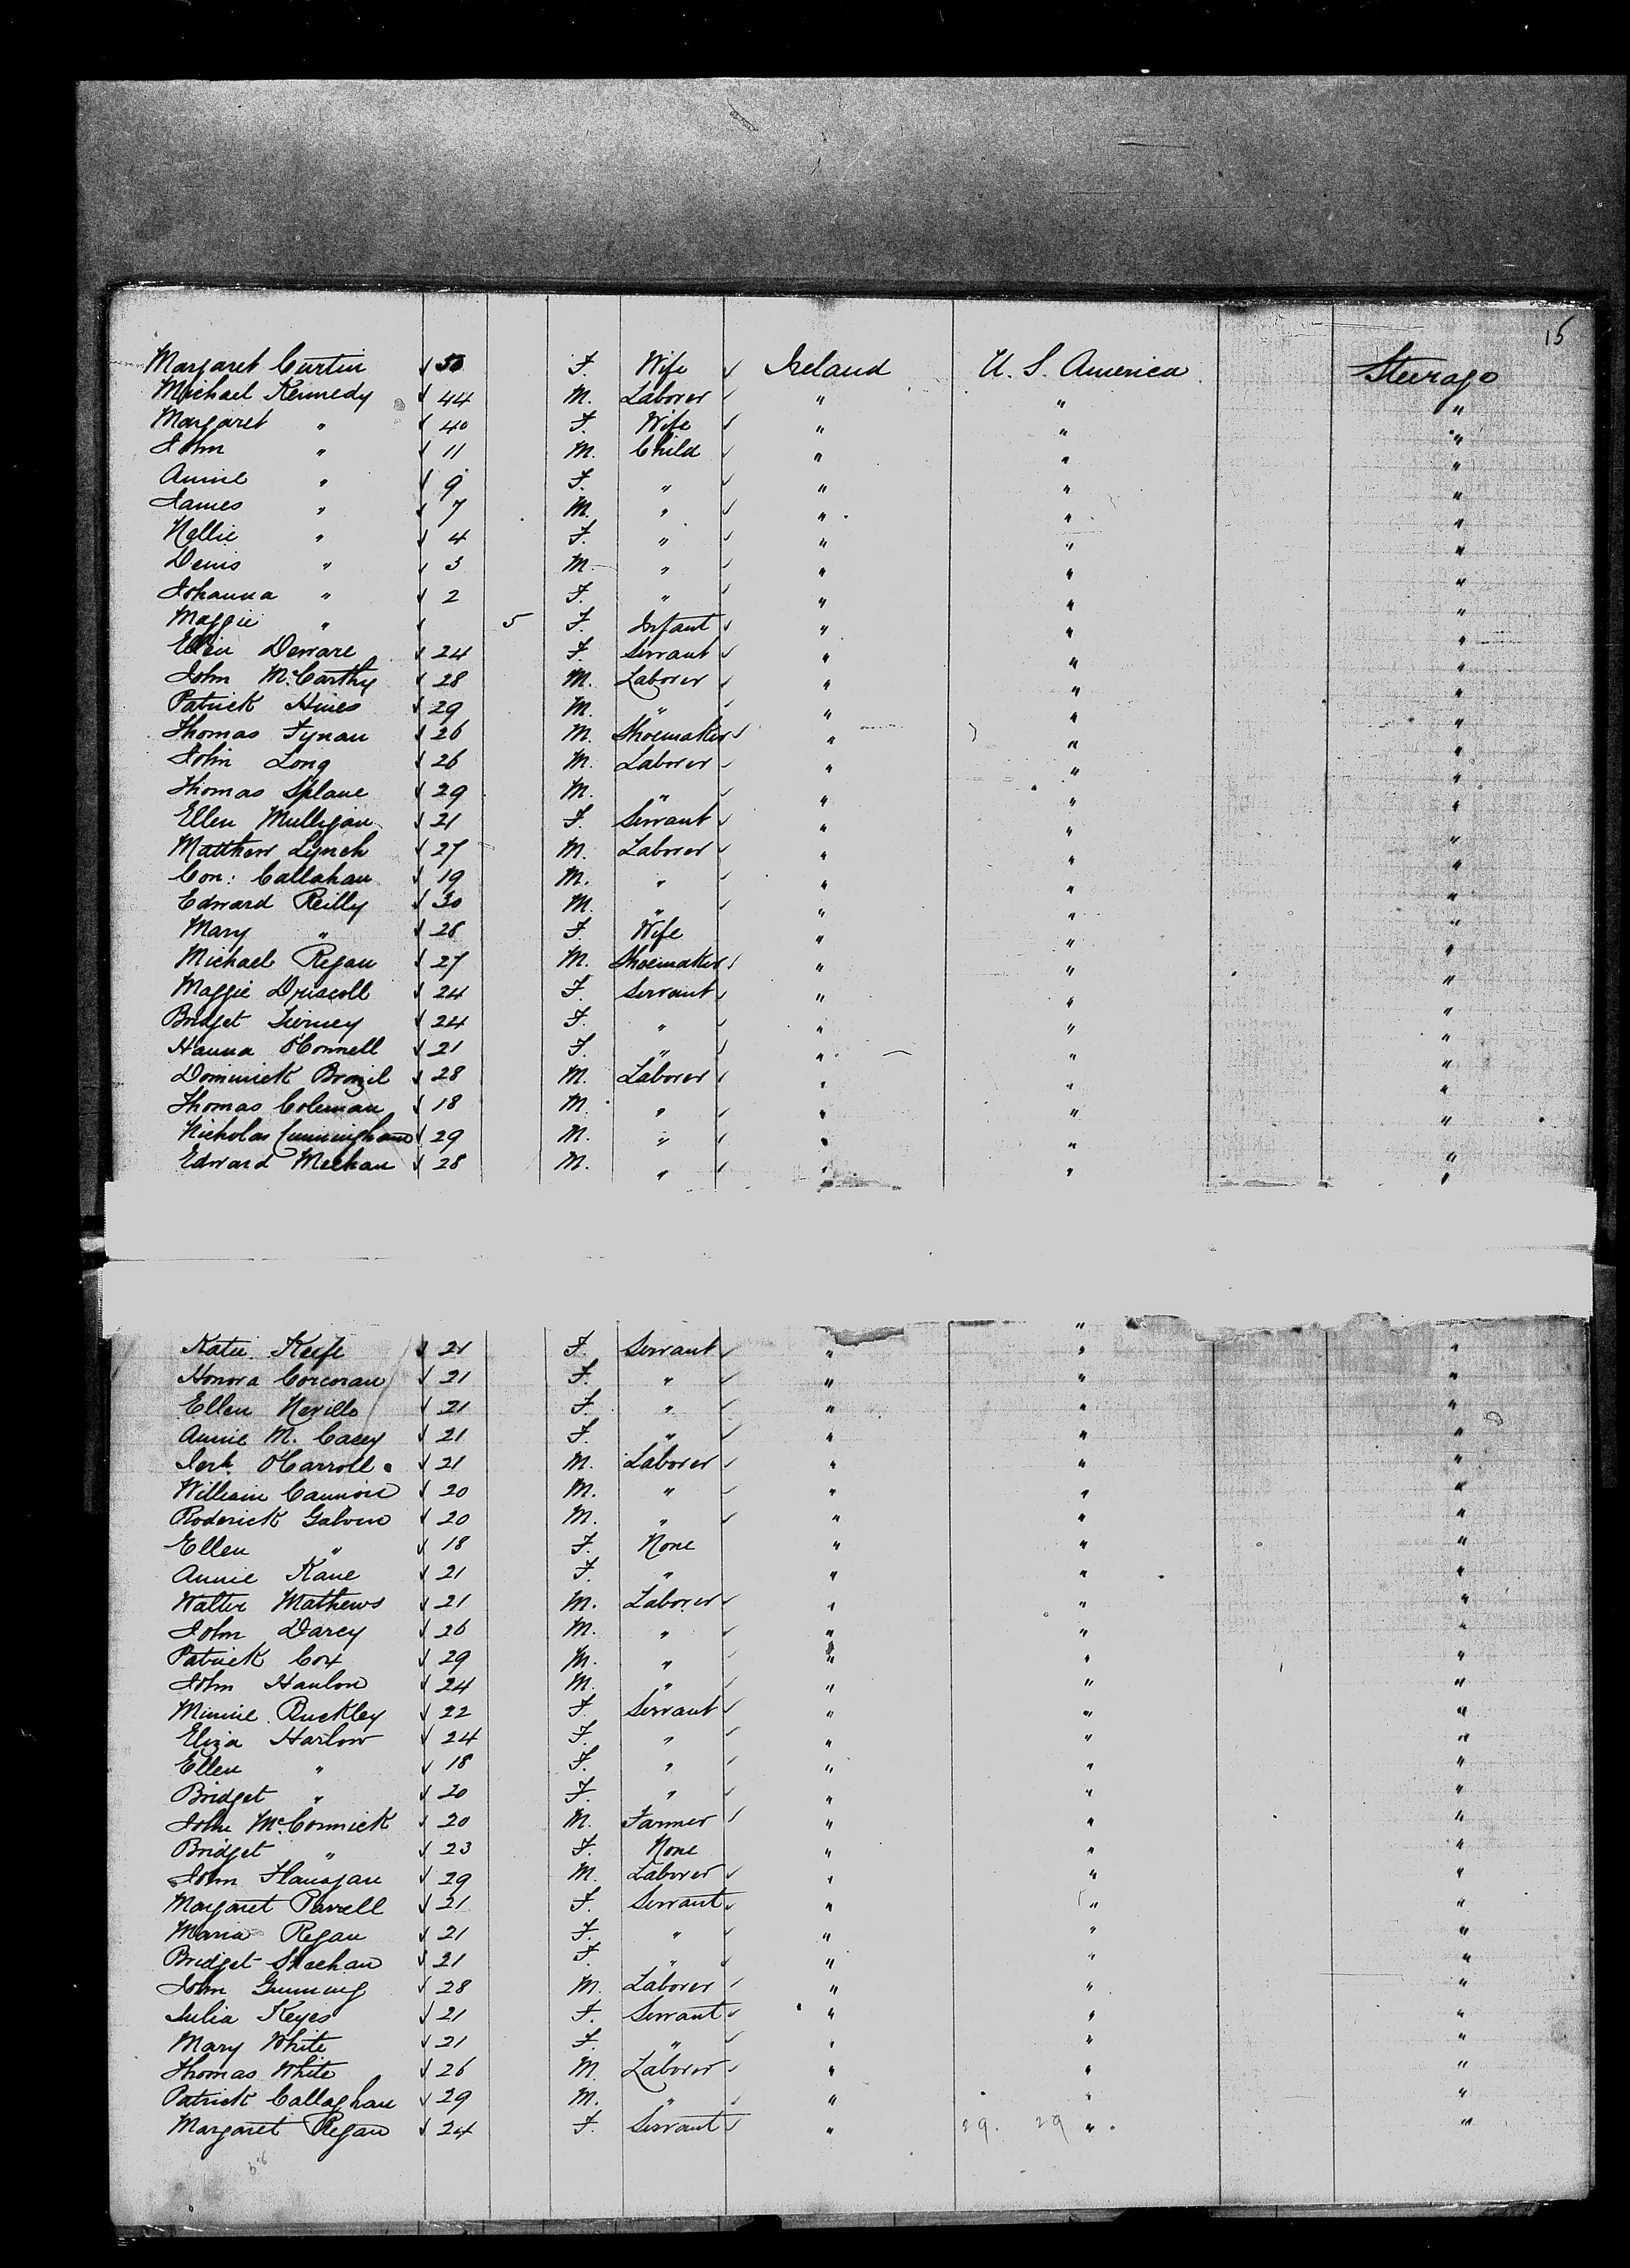 15
Margaret Curtin √ 50 F. Wife √ Ireland U. S. America Steerage
Michael Kennedy √ 44 M. Laborer √ " " "
Margaret " √ 40 F. Wife √ " " "
John " √ 11 M. Child √ " " "
Annie " √ 9 F. " √ " " "
James " √ 7 M. " √ " " "
Nellie " √ 4 F. " √ " " "
Denis " √ 3 M. " √ " " "
Johanna " √ 2 F. " √ " " "
Maggie " √ 5 F. Infant √ " " "
Ellen √ 24 F. Servant √ " " "
John McCarthy √ 28 M. Laborer √ " " "
Patrick Hines √ 29 M. " √ " " "
Thomas Tynan √ 26 M. Shoemaker √ " " "
John Long √ 26 M. Laborer √ " " "
Thomas Splane √ 29 M. " √ " " "
Ellen Mulligan √ 21 F. Servant √ " " "
Matthew Lynch √ 27 M. Laborer √ " " "
Con: Callahan √ 19 M. " √ " " "
Edward Reilly √ 30 M. " √ " " "
Mary " √ 28 F. Wife " " "
Michael Regan √ 27 M. Shoemaker √ " " "
Maggie Driscoll √ 24 F. Servant √ " " "
Bridget Tierney √ 24 F. " √ " " "
Hanna O'Connell √ 21 F. " √ " " "
Dominick Brozil √ 28 M. Laborer √ " " "
Thomas Coleman √ 18 M. " √ " " "
Nicholas Cunningham √ 29 M. " √ " " "
Edward Meehan √ 28 M. " √ " " "
"
Katie Keefe √ 21 F. Servant √ " " "
Honora Corcoran √ 21 F. " √ " " "
Ellen Neville √ 21 F. " √ " " "
Annie M. Casey √ 21 F. " √ " " "
Jerh. O'Carroll √ 21 M. Laborer √ " " "
William Cannon √ 20 M. " √ " " "
Roderick Galvin √ 20 M. " √ " " "
Ellen " √ 18 F. None " " "
Annie Kane √ 21 F. " " " "
Walter Mathews √ 21 M. Laborer √ " " "
John Darcy √ 26 M. " √ " " "
Patrick Cox √ 29 M. " √ " " "
John Hanlon √ 24 M. " √ " " "
Minnie Buckley √ 22 F. Servant √ " " "
Eliza Harlow √ 24 F. " √ " " "
Ellen " √ 18 F. " √ " " "
Bridget " √ 20 F. " √ " " "
John McCormick √ 20 M. Farmer √ " " "
Bridget " √ 23 F. None " " "
John Flanagan √ 29 M. Laborer √ " " "
Margaret √ 21 F. Servant √ " " "
Maria Regan √ 21 F. " √ " " "
Bridget Sheehan √ 21 F. " √ " " "
John Gunning √ 28 M. Laborer √ " " "
Julia Keyes √ 21 F. Servant √ " " "
Mary White √ 21 F. " √ " " "
Thomas White √ 26 M. Laborer √ " " "
Patrick Callaghan √ 29 M. " √ " " "
Margaret Regan √ 24 F. Servant √ " 29. 29 " "